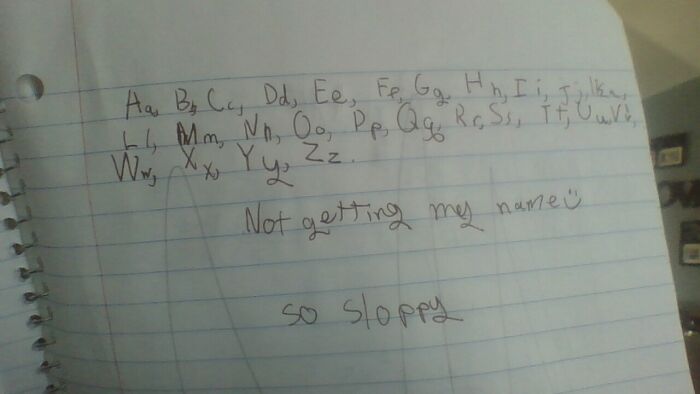 Aa, Bb, Cc, Dd, Ee, Ff, Gg, Hh, Ii, Jj, Kk,
Ll, Mm, Nn, Oo, Pp, Qq, Rr, Ss, Tt, Uu, Vv,
Ww, Xx, Yy, Zz.
Not getting my name☺
so sloppy